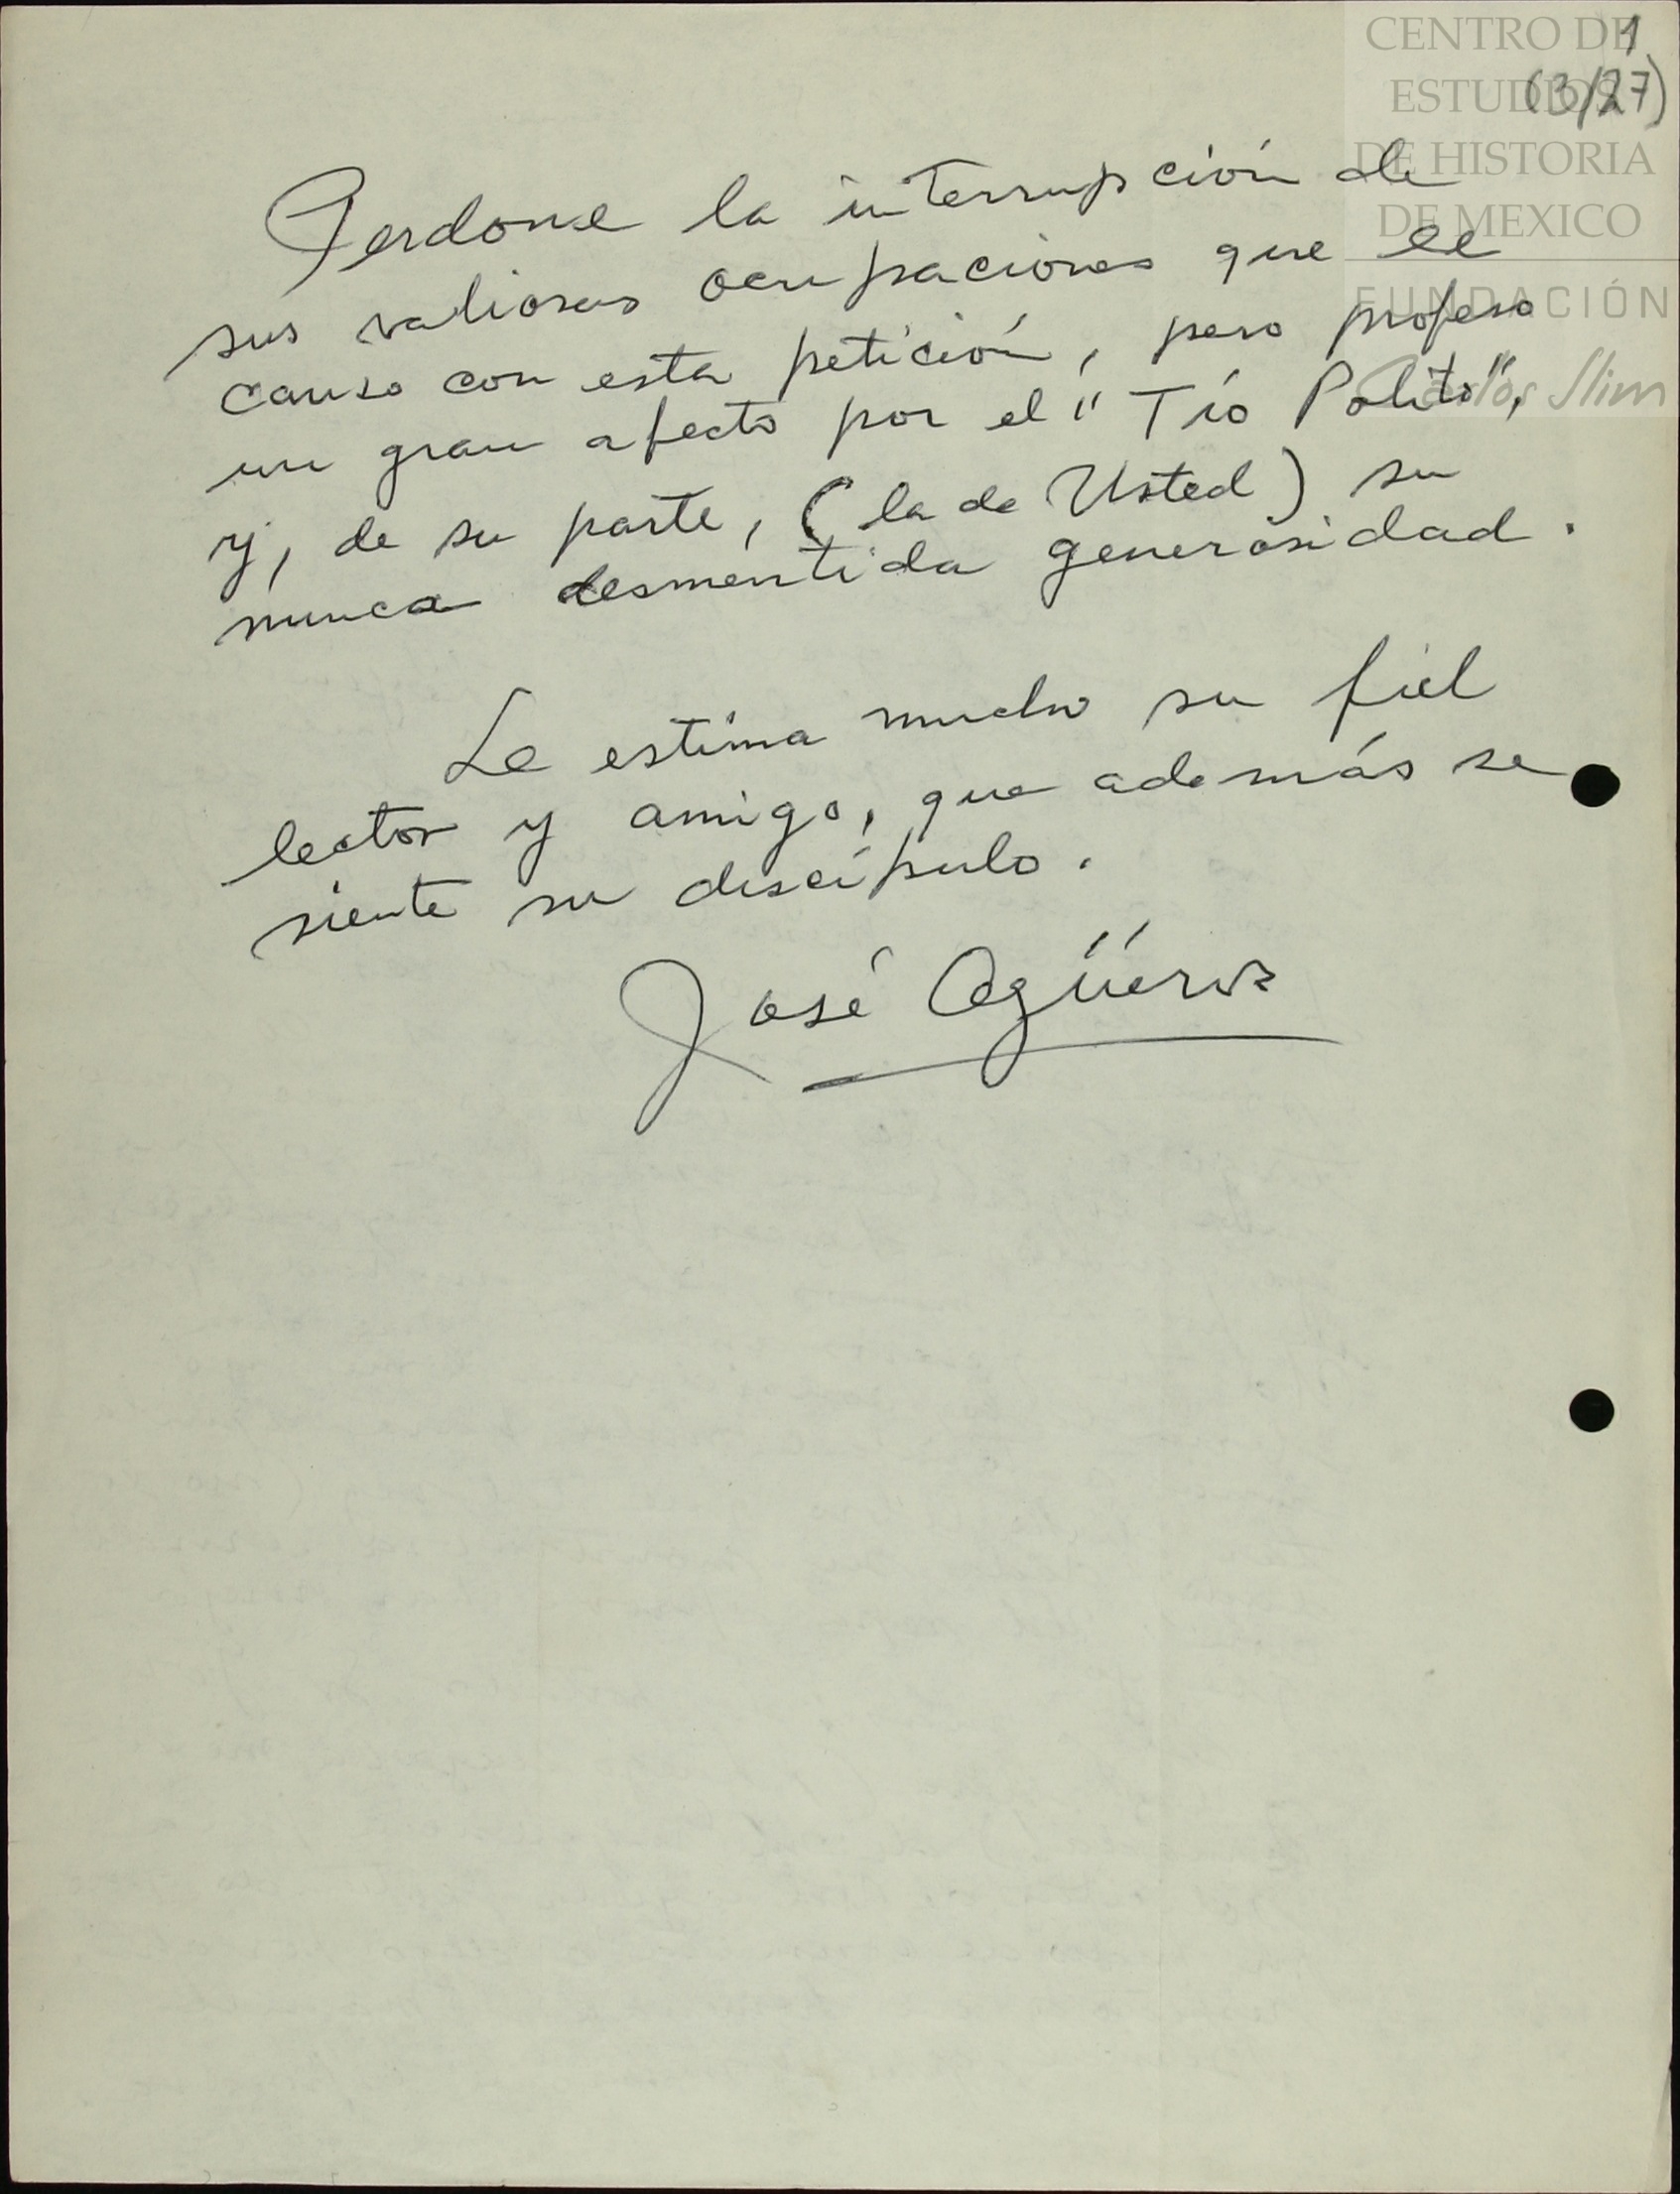 CENTRO DE
ESTUDIOS
DE HISTORIA
DE MEXICO
FUNDACIÓN
Carlos Slim
1
(3/27)
Perdone la interrupción de
sus valiosas ocupaciones que le
causo con esta petición, pero profeso
un gran afecto por el "Tío Polito",
y, de su parte, (la de Usted) su
nunca desmentida generosidad.
Le estima mucho su fiel
lector y amigo, que además se
siente su discípulo.
José Agüeros